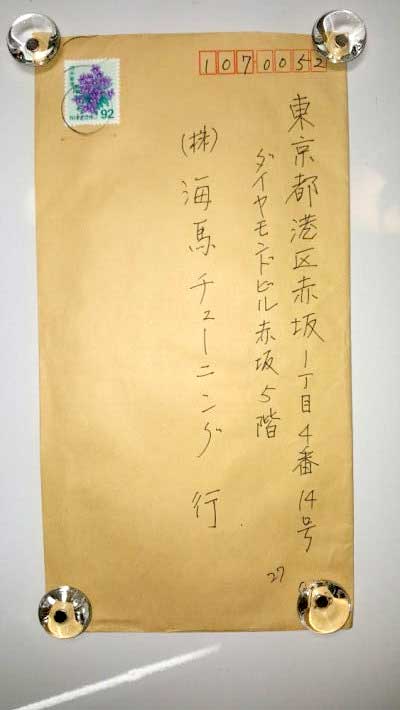 1070052
東京都港区赤坂1丁目4番14号
ダイヤモンドビル赤坂5階
(株)海馬チューニング 行
92
27